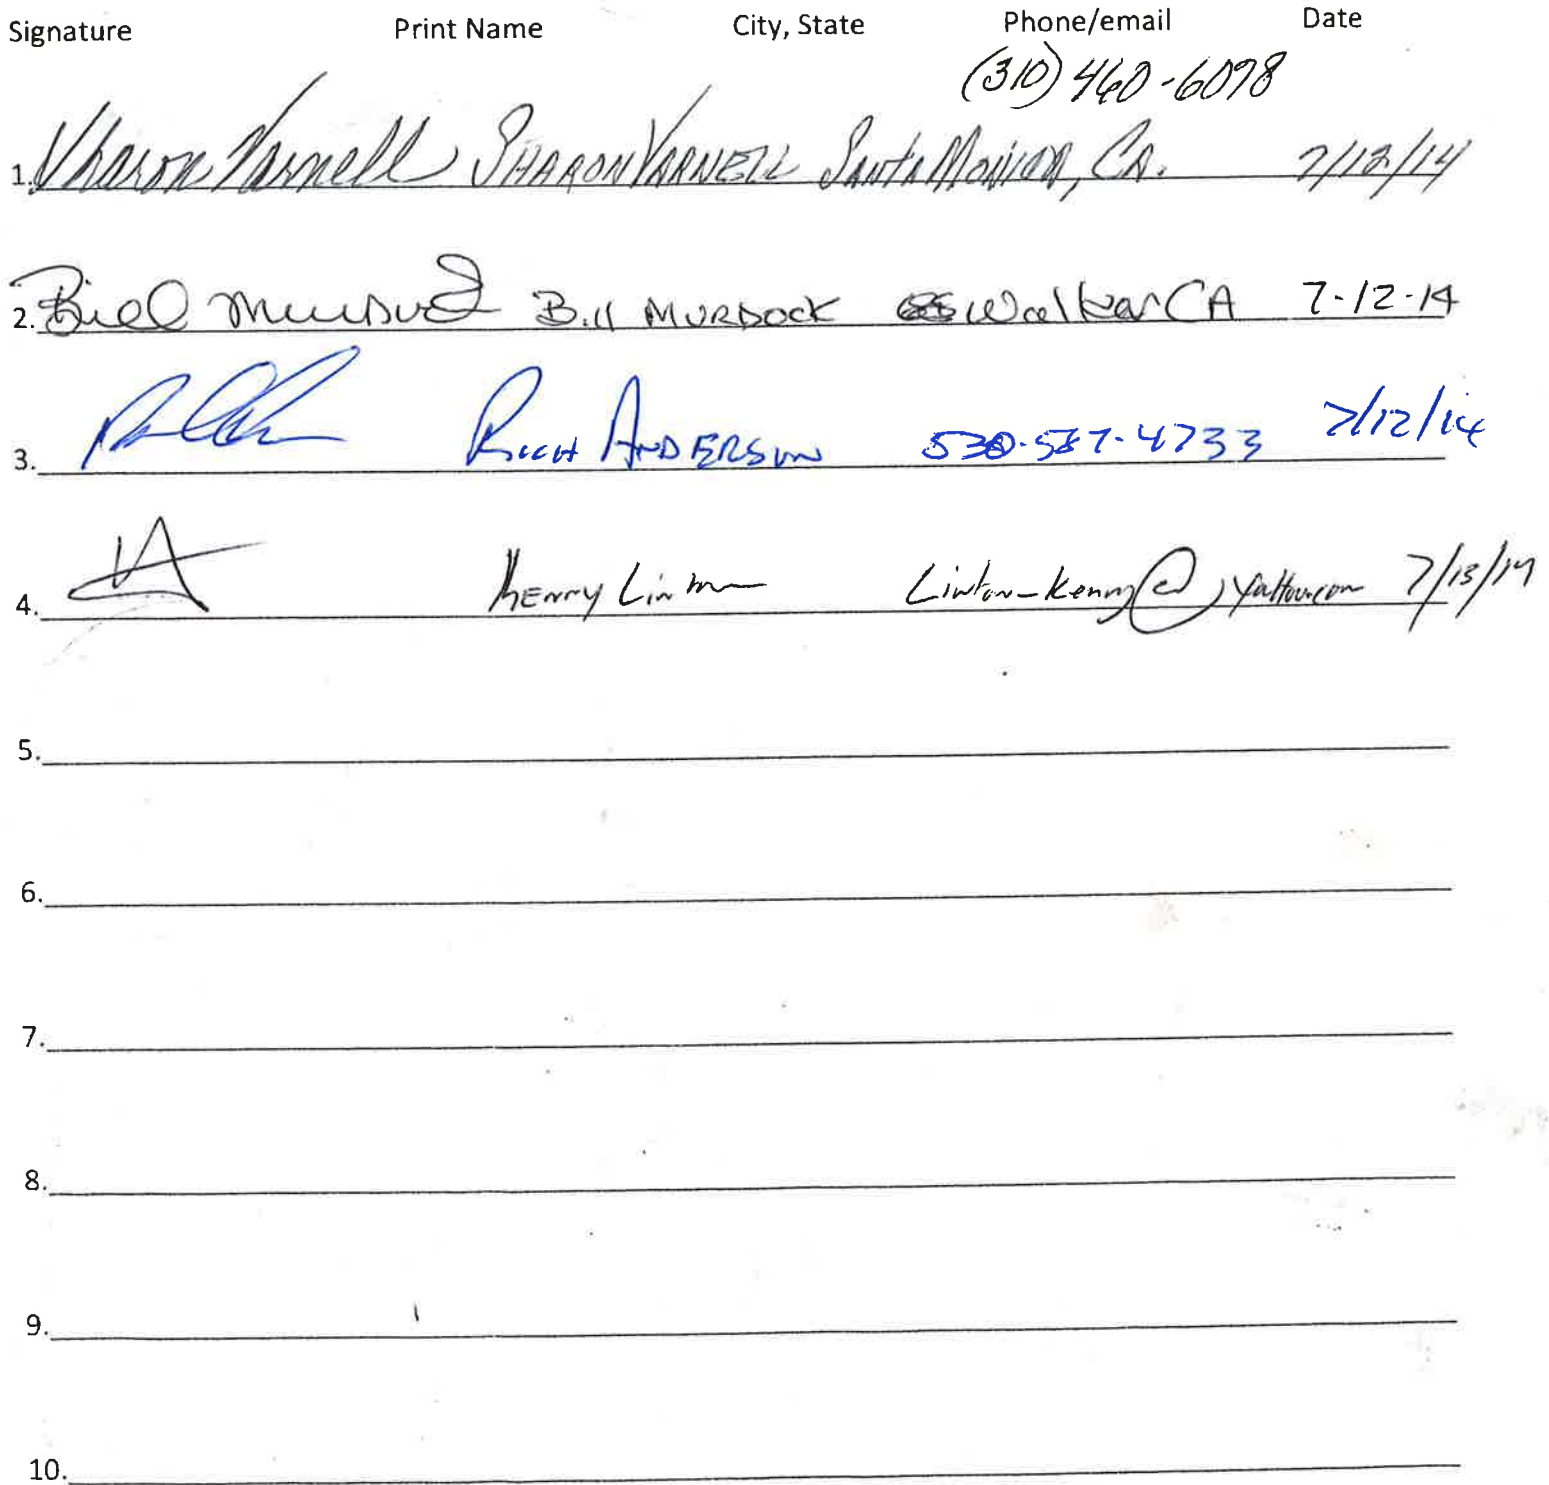 Signature Print Name City, State Phone/email Date
(310) 460-6098
1. Sharon Varnell SHARON VARNELL Santa Monica, CA. 7/12/14
2. Bill Murdock Bill MURDOCK Walker CA 7-12-14
3. RICH ANDERSON 530-587-4733 7/12/14
4. Kenny Linton Linton-Kenny@yahoo.com 7/13/14
5.
6.
7.
8.
9.
10.